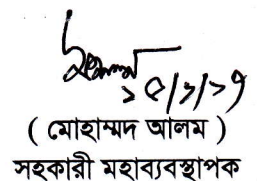 ১৫/১/১৭
( মোহাম্মদ আলম )
সহকারী মহাব্যবস্থাপক